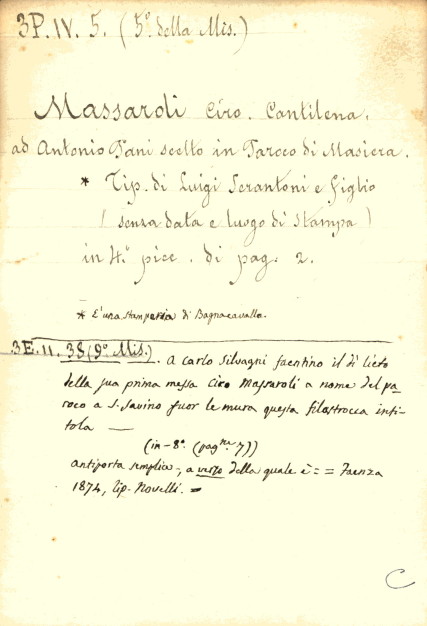 3P. IV. 5. (5.º della Mis.)
Massaroli Ciro. Cantilena.
ad Antonio Fani scelto in Paroco di Masiera.
* Tip. di Luigi Serantoni e figlio
(senza data e luogo di Stampa)
in 4.º picc. di pag. 2.
* È una stamperia di Bagnacavallo.
3E. 11. 38 (9º Mis.). A Carlo Silvagni faentino il dì lieto
della sua prima messa Ciro Massaroli a nome del pa=
roco a S. Savino fuor le mura questa filastrocca inti=
tola —
(in-8º (pagne 7))
antiporta semplice, a verso della quale è: = Faenza
1874, tip. Novelli. =
C